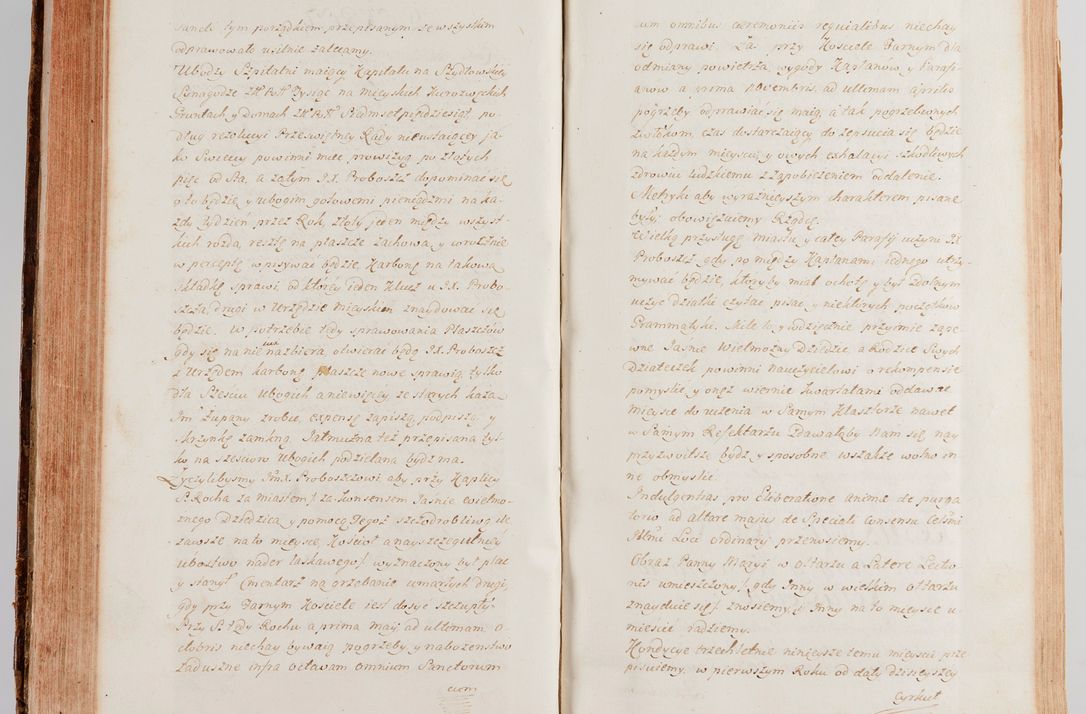 sancti tym porządkiem przepisanym, we wszystkim
odprawowało usilnie zalecamy.
Ubodzy Szpitalni maiący Kapitału na Szydłowskiey
Synagodze Zł Pol Tysiąc na mieyskich Kurozwęckich
Gruntach y Domach Zł Pol Siedmset pięćdziesiąt, po-
dług rezolucyi Prześwietney Rady nieustaiącey ja-
ko Świeccy powinni mieć prowizyą po złotych
pięć od sta, a zatym I.X. Proboszcz dopominać się
o to będzie y ubogim gotowemi pieniędzmi na ka-
żdy Tydzień przez Rok, złoty jeden między wszyst-
kich rozda, resztę na płaszcze zachowa, y corocznie
w percepte wpisywać będzie. Karbonę na takową
składkę sprawi od ktorey ieden Klucz u I.X. Probo-
szcza, drugi w Urzędzie Mieyskim znaydować się
będzie. W potrzebie tedy sprawowania Płaszczów
gdy się na nie summa nazbiera, otwierać będą I.X. Proboszcz
z Urzędem karbonę, Płaszcze nowe sprawią tylko
dla Sześciu Ubogich a niewięcey ze starych każą
Im Żupany zrobić, expensę zapiszą, podpiszą, y
skrzynkę zamkną. Jałmużna też przepisana tyl-
ko na sześcioro Ubogich podzielana bydź ma.
Zyczylibysmy Jmć X. Proboszczowi aby przy Kaplicy
S. Rocha za miastem / za konsensem Jaśnie Wielmo-
żnego Dziedzica y pomocą Jegoż szczodrobliwą ile
zawsze na to mieysce, Kościoł a nayszczegulniey
ubostwo nader łaskawego / wyznaczony był plac
y stanął Cmentarz na grzebanie umarłych drugi,
gdy przy Farnym Kościele iest dosyć szczupły.
Przy S. tedy Rochu a prima maij ad ultimam O-
ctobris niechay bywaią pogrzeby, y nabożeństwo
zaduszne infra octavam omnium Sanctorum
cum
cum omnibus ceremoniis requialibus niechay
się odprawi. Za przy Kosciele Farnym dla
odmiany powietrza, wygody Kapłanów y Parafi-
anów a prima novembris ad ultimam aprilis
pogrzeby odprawiać się maią, a tak pogrzebionych
zwłokom, czas dostarczaiący do zepsucia się będzie
na każdym mieyscu, y owych exhalacyi szkodliwych
zdrowiu ludzkiemu z zapobieżeniem oddalenie.
Metryki aby wyraźnieyszym charakterem pisane
były, obowiązuiemy Rządcę.
Wielką przysługę miastu y całey Parafij uczyni I.X.
Proboszcz gdy pomiędzy Kapłanami iednego utrzy-
mywać będzie, ktoryby miał ochotę y był zdolnym
uczyć Dziatki czytać, pisać, y niektorych początkow
Grammatyki. Mile to y wdzięcznie przyimie zape-
wne Jaśnie Wielmożny Dziedzic, a Rodzice Swych
Dziateczek powinni nauczycielowi o rekompensie
pomyślić y onęż wiernie kwartałami oddawać
mieysce do uczenia w Samym Klasztorze nawet
w Samym Refektarzu zdawałoby Nam się nay
przyzwoitsze bydź y sposobne, wszakże wolno in-
ne obmyślić.
Indulgentias pro Eliberatione animæ de purga-
torio ad altare majus de Speciali Consensu Celsmi
Illmi Loci ordinarij przenosiemy.
Obraz Panny Maryi w ołtarzu a Latere Lecto-
nis umieszczony / gdy Inny w wielkim ołtarzu
znayduie się / znosiemy, i Inny na to mieysce u-
mieścić radziemy.
Kondycye trzechletnie ninieysze temu mieyscu prze-
pisuiemy. w pierwszym Roku od daty dzisieyszey
Cyrkuł